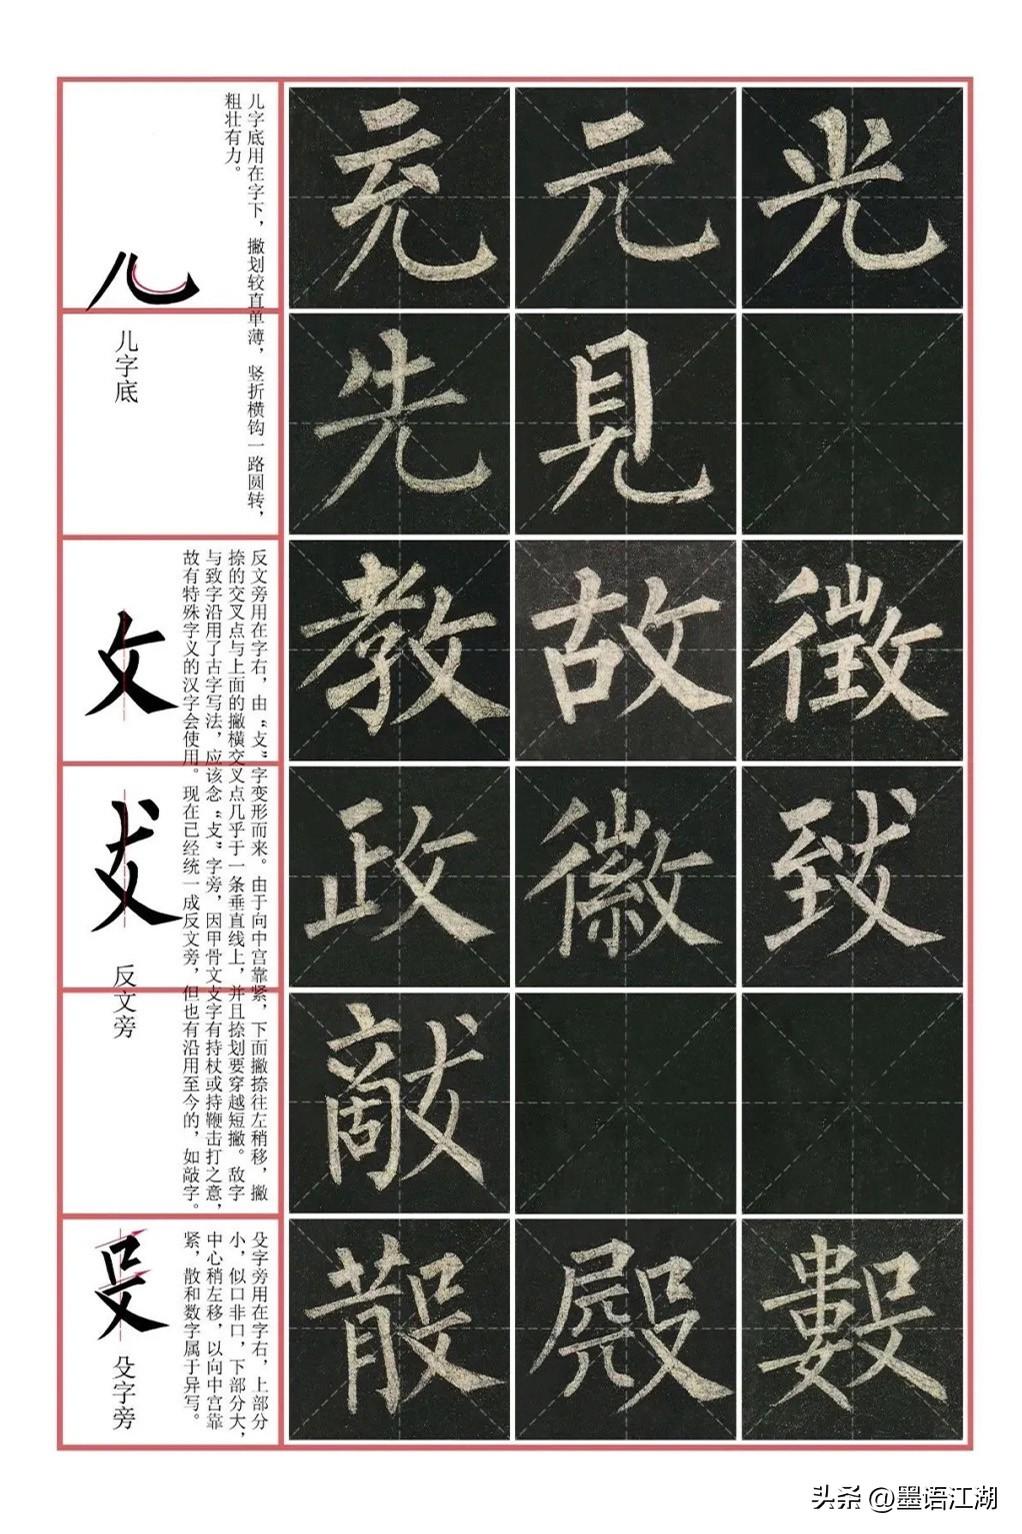 儿字底用在字下，撇划较直单薄，竖折横钩一路圆转，
粗壮有力。
儿
儿字底
充元光
先見
反文旁用在字右，由“攴”字变形而来。由于向中宫靠紧，下面撇捺往左稍移，撇
捺的交叉点与上面的撇横交叉点几乎于一条垂直线上，并且捺划要穿越短撇。敌字
与致字沿用了古字写法，应该念“攴”字旁，因甲骨文支字有持杖或持鞭击打之意，
故有特殊字义的汉字会使用。现在已经统一成反文旁，但也有沿用至今的，如敲字。
攵
反文旁
教故徵
政徽致
敵
殳字旁用在字右，上部分
小，似口非口，下部分大，
中心稍左移，以向中宫靠
紧，散和数字属于异写。
殳
殳字旁
散殿數
头条 @墨语江湖